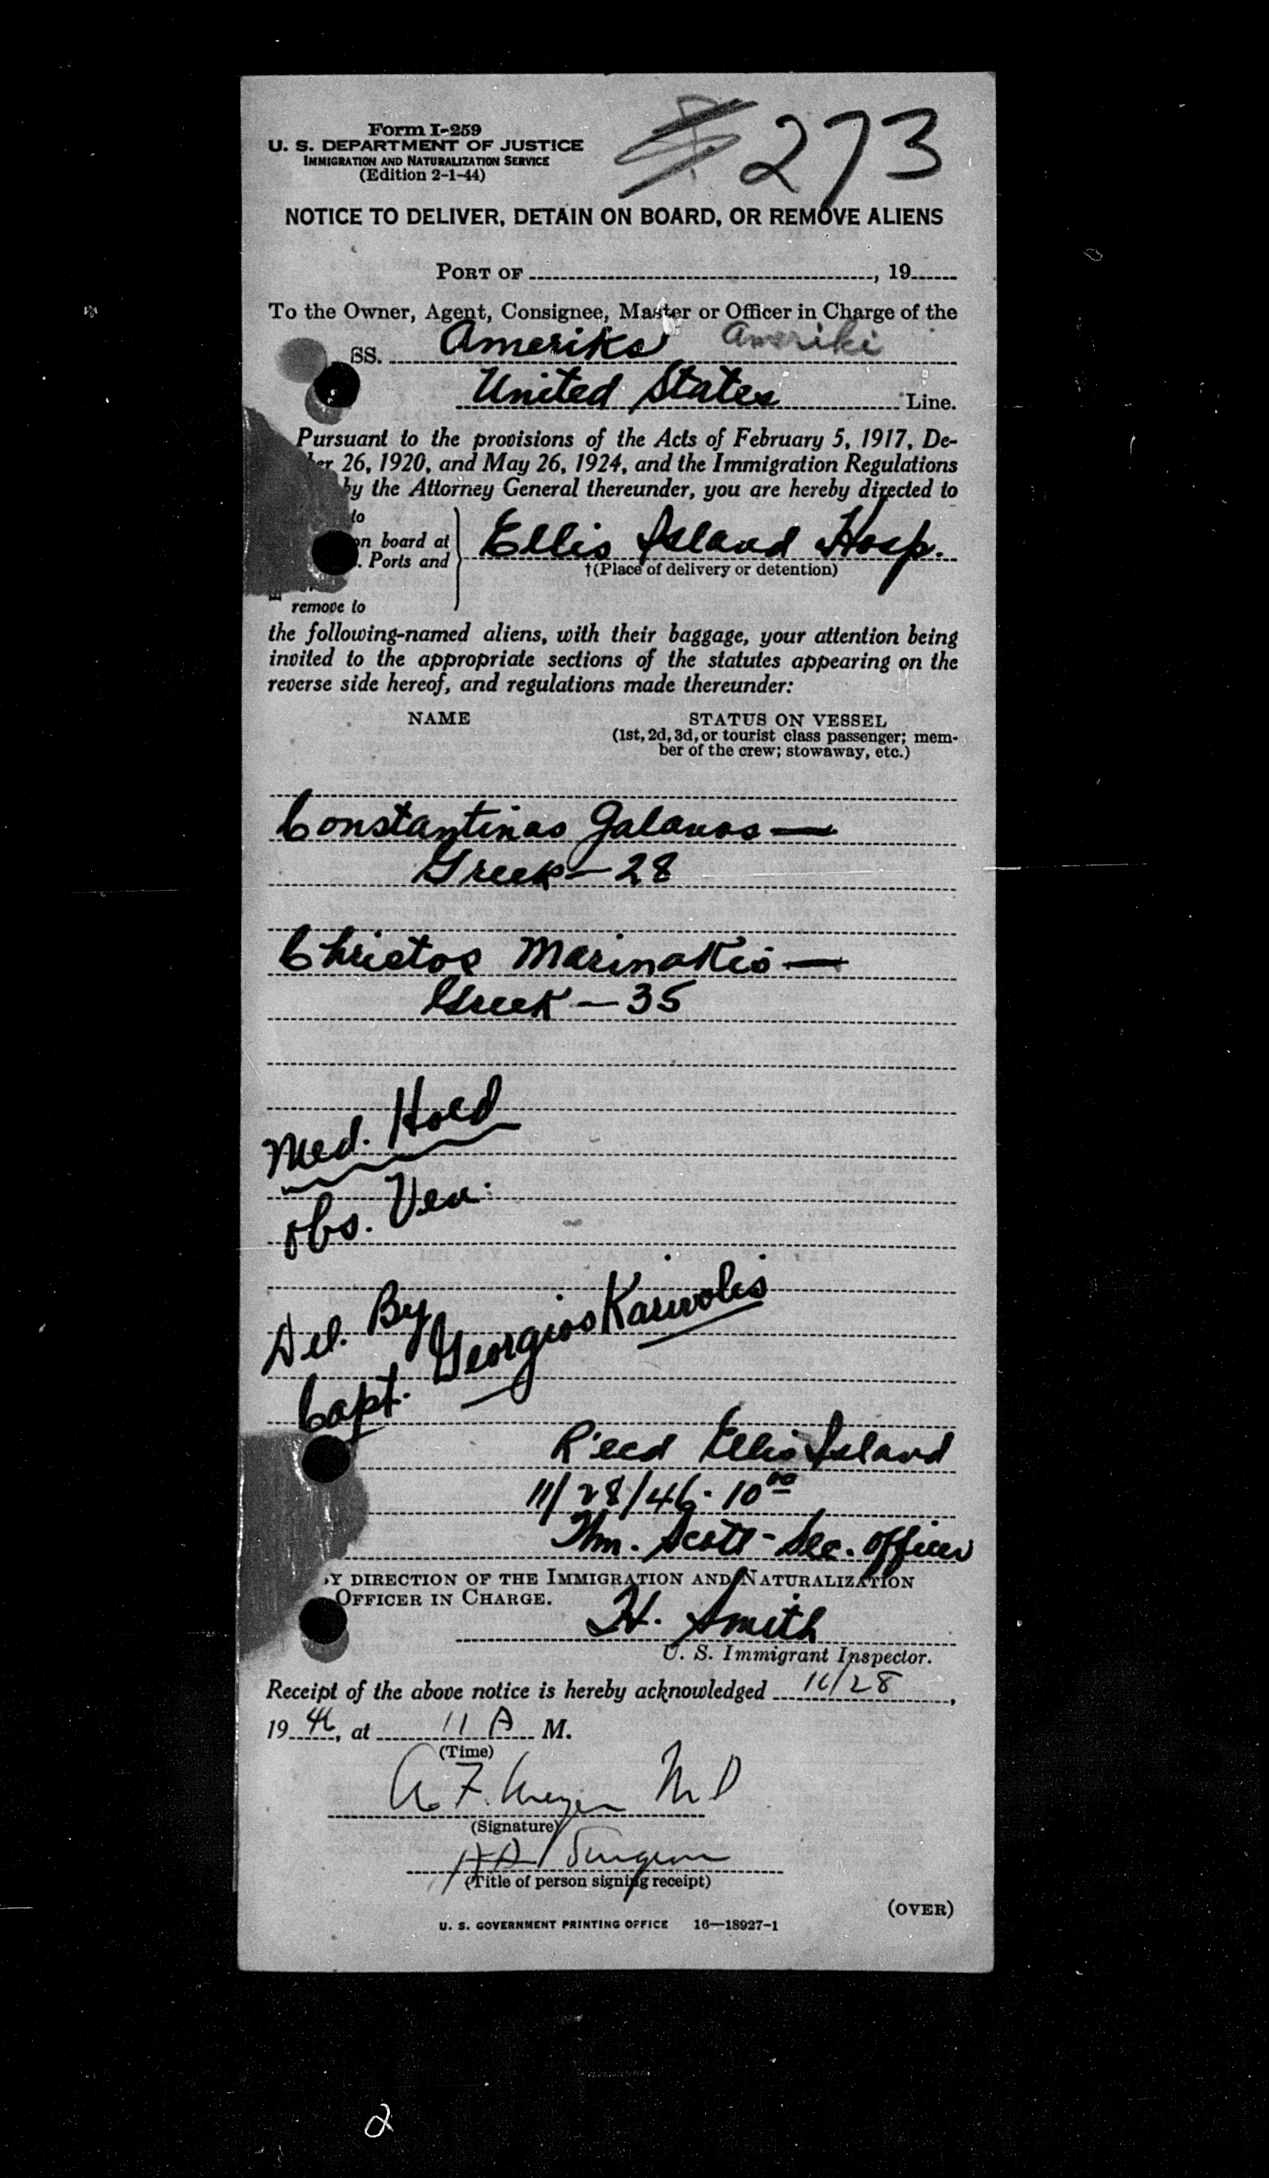 Form I-259
U. S. DEPARTMENT OF JUSTICE
IMMIGRATION AND NATURALIZATION SERVICE
(Edition 2-1-44)
273
NOTICE TO DELIVER, DETAIN ON BOARD, OR REMOVE ALIENS
PORT OF , 19
To the Owner, Agent, Consignee, Master or Officer in Charge of the
SS. Ameriki Ameriki
United States Line.
Pursuant to the provisions of the Acts of February 5, 1917, De-
26, 1920, and May 26, 1924, and the Immigration Regulations
by the Attorney General thereunder, you are hereby directed to
to
on board at
Ports and
Ellis Island Hosp.
†(Place of delivery or detention)
remove to
the following-named aliens, with their baggage, your attention being
invited to the appropriate sections of the statutes appearing on the
reverse side hereof, and regulations made thereunder:
NAME STATUS ON VESSEL
(1st, 2d, 3d, or tourist class passenger; mem-
ber of the crew; stowaway, etc.)
Constantinos Galanos —
Greek — 28
Christos Marinakis —
Greek — 35
Med. Hold
Obs. Ven.
Del. By
Capt. Georgios
R'ecd Ellis Island
11/28/46 - 10 00
Wm. Scott - Sec. officer
BY DIRECTION OF THE IMMIGRATION AND NATURALIZATION
OFFICER IN CHARGE.
H. Smith
U. S. Immigrant Inspector.
Receipt of the above notice is hereby acknowledged 11/28,
19 46, at 11 A M.
(Time)
A. F. M D
(Signature)
Surgeon
(Title of person signing receipt)
(OVER)
U. S. GOVERNMENT PRINTING OFFICE 16—18927-1
2